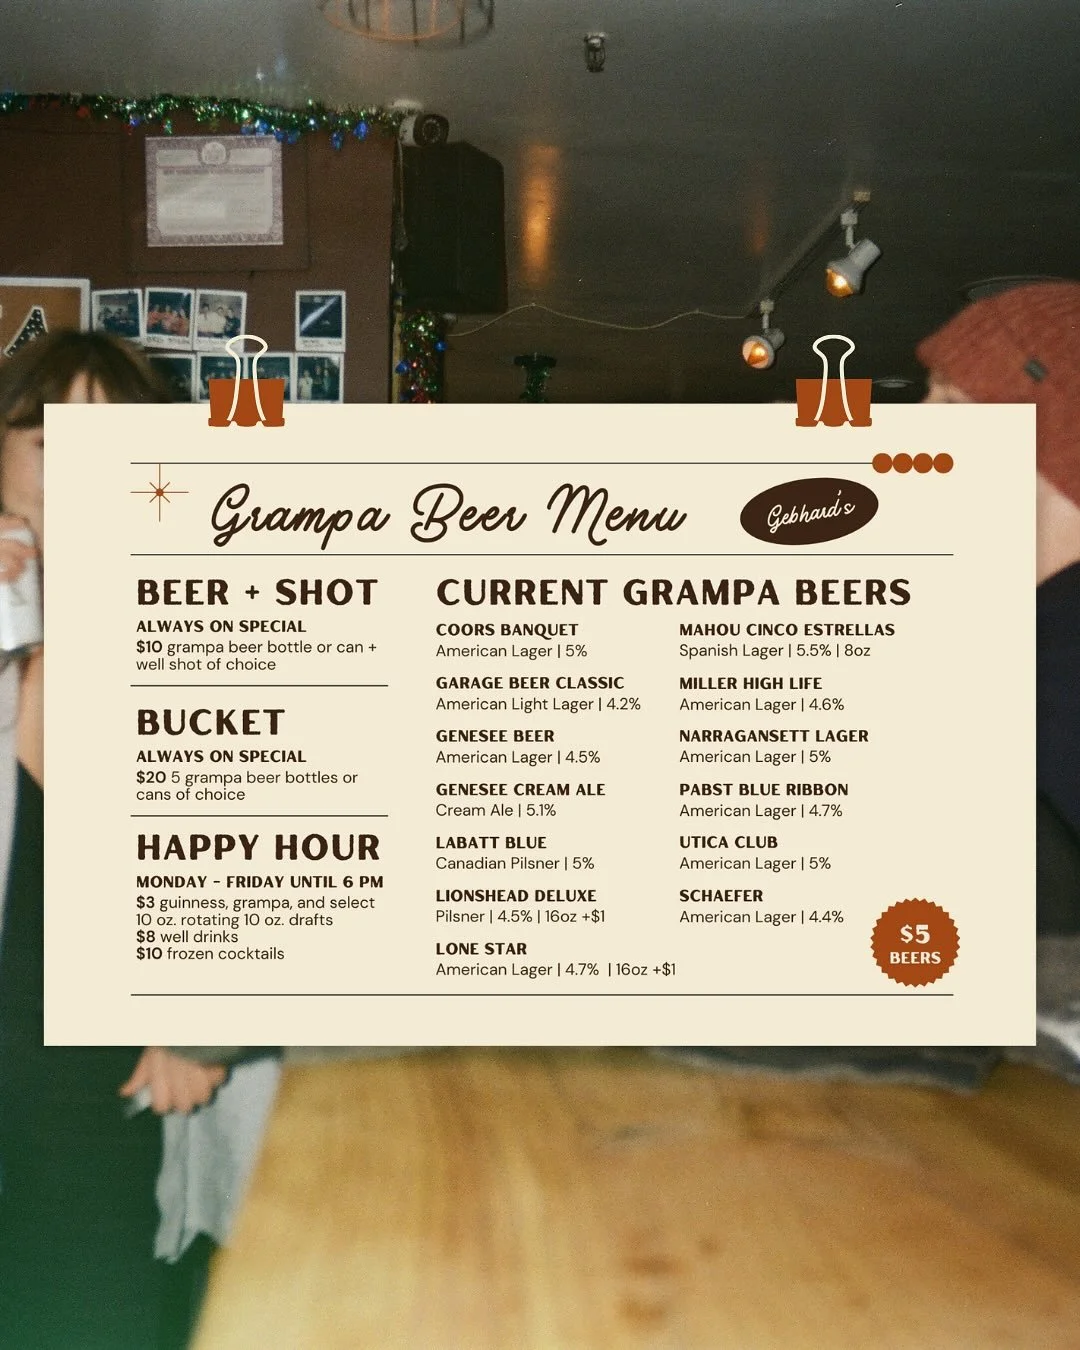 Grampa Beer Menu
Gebhard's
BEER + SHOT
ALWAYS ON SPECIAL
$10 grampa beer bottle or can +
well shot of choice
BUCKET
ALWAYS ON SPECIAL
$20 5 grampa beer bottles or
cans of choice
HAPPY HOUR
MONDAY - FRIDAY UNTIL 6 PM
$3 guinness, grampa, and select
10 oz. rotating 10 oz. drafts
$8 well drinks
$10 frozen cocktails
CURRENT GRAMPA BEERS
COORS BANQUET
American Lager | 5%
GARAGE BEER CLASSIC
American Light Lager | 4.2%
GENESEE BEER
American Lager | 4.5%
GENESEE CREAM ALE
Cream Ale | 5.1%
LABATT BLUE
Canadian Pilsner | 5%
LIONSHEAD DELUXE
Pilsner | 4.5% | 16oz +$1
LONE STAR
American Lager | 4.7% | 16oz +$1
MAHOU CINCO ESTRELLAS
Spanish Lager | 5.5% | 8oz
MILLER HIGH LIFE
American Lager | 4.6%
NARRAGANSETT LAGER
American Lager | 5%
PABST BLUE RIBBON
American Lager | 4.7%
UTICA CLUB
American Lager | 5%
SCHAEFER
American Lager | 4.4%
$5
BEERS